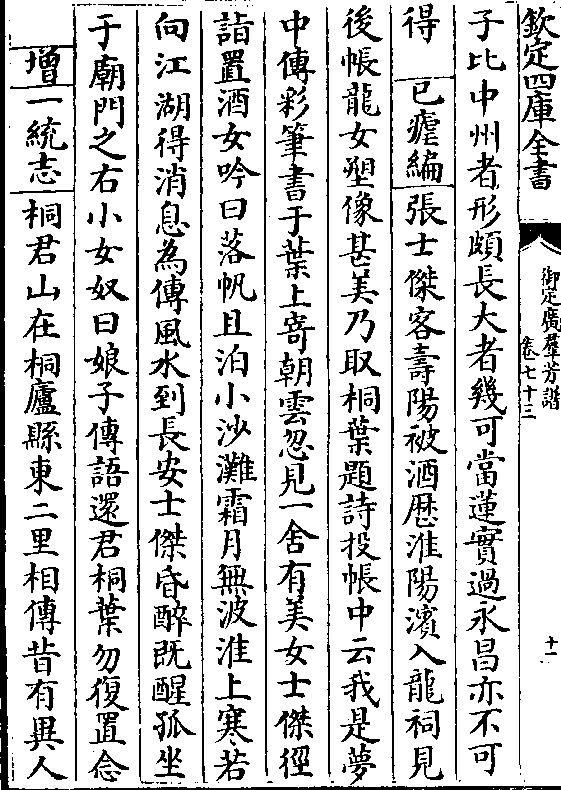 欽定四庫全書
御定廣羣芳譜
卷七十三
十一
子比中州者形頗長大者幾可當蓮實過永昌亦不可
得　已瘧編　張士傑客壽陽被酒歷淮陽濱入龍祠見
後帳龍女塑像甚美乃取桐葉題詩投帳中云我是夢
中傳彩筆書于葉上寄朝雲忽見一舍有美女士傑徑
詣置酒女吟曰落帆且泊小沙灘霜月無波淮上寒若
向江湖得消息為傳風水到長安士傑昏醉既醒孤坐
于廟門之右小女奴曰娘子傳語還君桐葉勿復置念
增一統志　桐君山在桐廬縣東二里相傳昔有異人